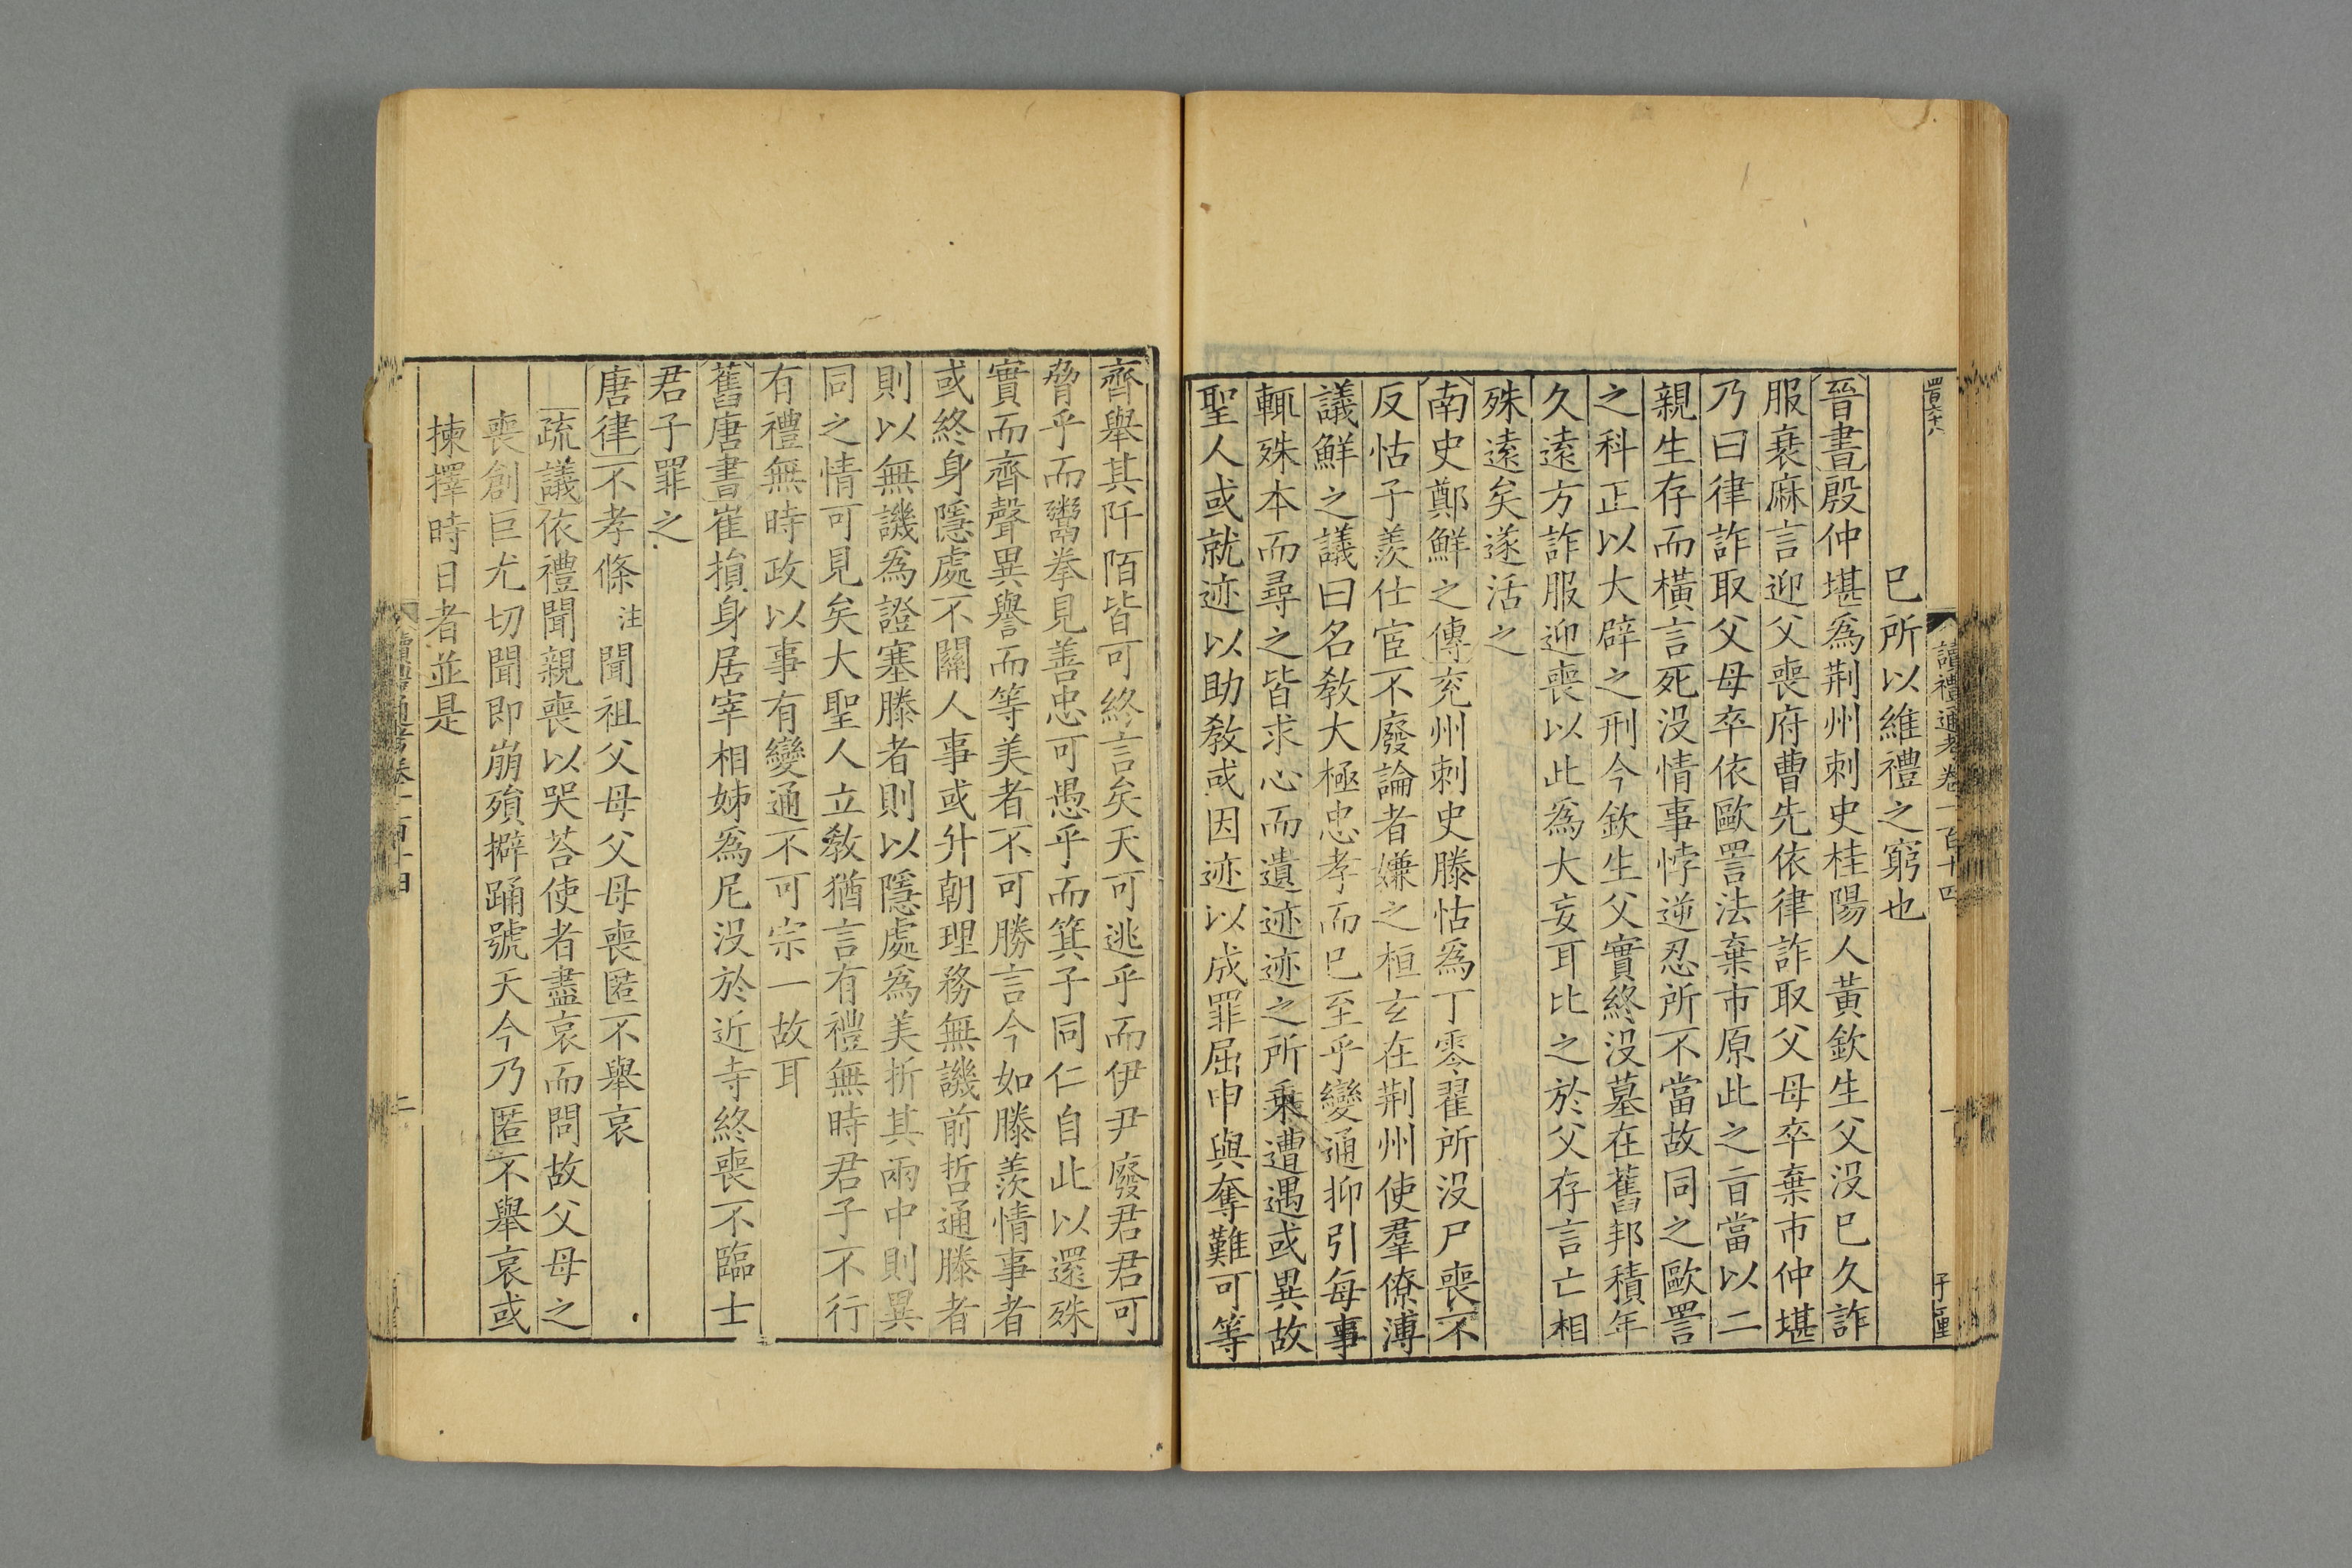 四百六十八
讀禮通考卷一百十四
一
巳所以維禮之窮也
晉書殷仲堪為荆州刺史桂陽人黃欽生父没巳久詐
服衰麻言迎父喪府曹先依律詐取父母卒棄市仲堪
乃曰律詐取父母卒依歐詈法棄市原此之㫖當以二
親生存而橫言死没情事悖逆忍所不當故同之歐詈
之科正以大辟之刑今欽生父實終没墓在舊邦積年
久遠方詐服迎喪以此為大妄耳比之於父存言亡相
殊遠矣遂活之
南史鄭鮮之傳兖州刺史滕恬為丁零翟所没尸喪不
反恬子羨仕宦不廢論者嫌之桓玄在荆州使羣僚溥
議鮮之議曰名敎大極忠孝而巳至乎變通抑引每事
輒殊本而尋之皆求心而遺迹迹之所乗遭遇或異故
聖人或就迹以助敎或因迹以成罪屈申與奪難可等
齊舉其阡陌皆可終言矣天可逃乎而伊尹廢君君可
脅乎而鬻拳見善忠可愚乎而箕子同仁自此以還殊
實而齊聲異譽而等美者不可勝言今如滕羨情事者
或終身隱處不關人事或升朝理務無譏前哲通滕者
則以無譏為證塞滕者則以隱處為美折其兩中則異
同之情可見矣大聖人立敎猶言有禮無時君子不行
有禮無時政以事有變通不可宗一故耳
舊唐書崔損身居宰相姊為尼没於近寺終喪不臨士
君子罪之
唐律不孝條注聞祖父母父母喪匿不舉哀
疏議依禮聞親喪以哭荅使者盡哀而問故父母之
喪創巨尤切聞即崩殞擗踊號天今乃匿不舉哀或
揀擇時日者並是
讀禮通考卷一百十四
二